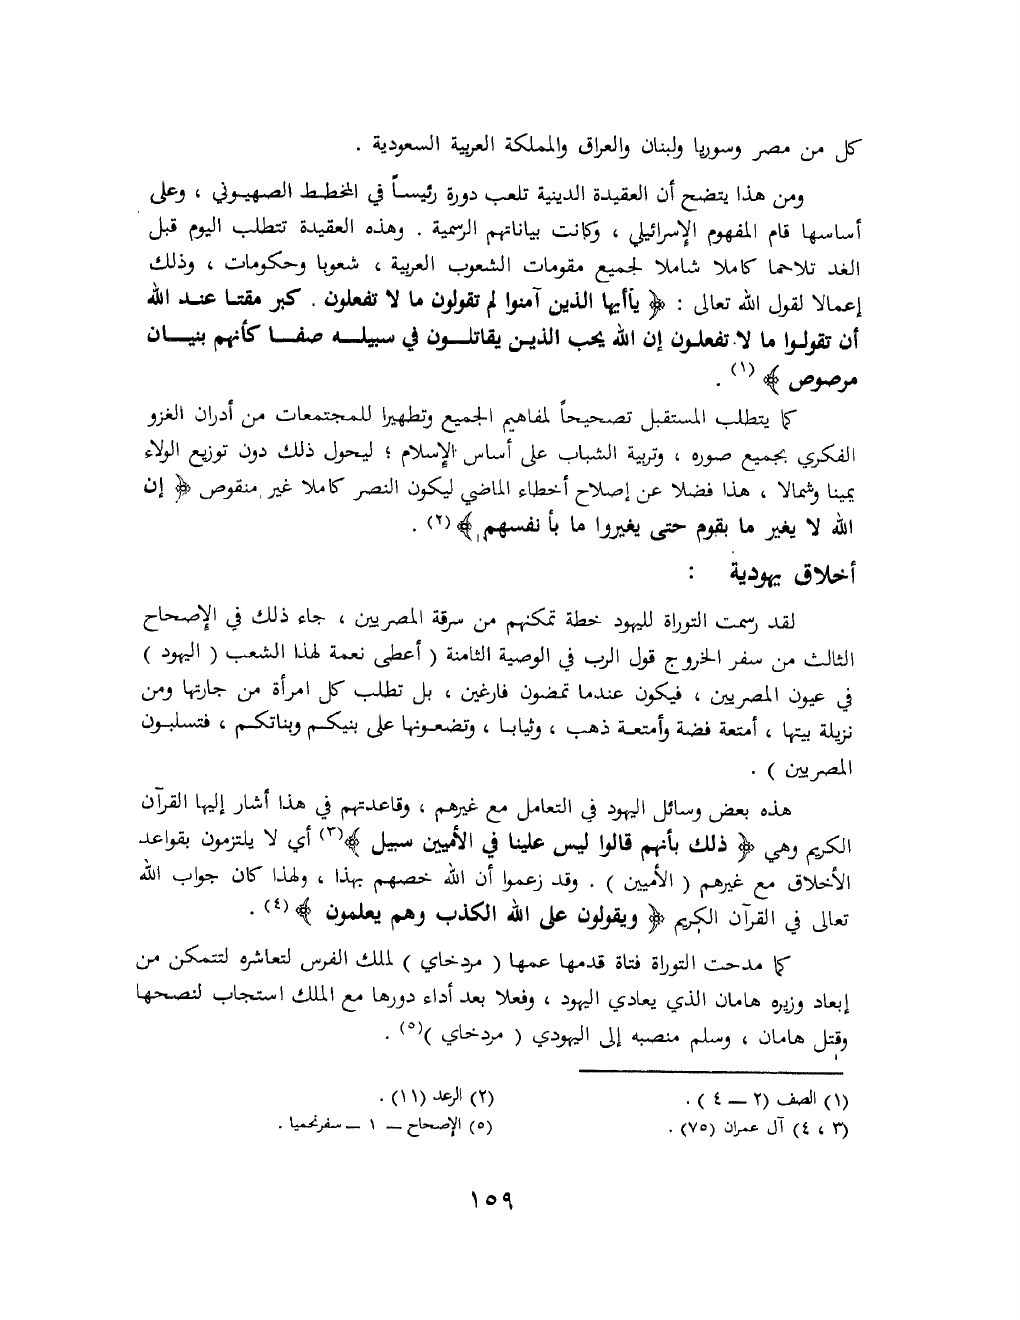 كل من مصر وسوريا ولبنان والعراق والمملكة العربية السعودية .
ومن هذا يتضح أن العقيدة الدينية تلعب دورة رئيساً في المخطط الصهيوني ، وعلى
أساسها قام المفهوم الإسرائيلي ، وكانت بياناتهم الرسمية . وهذه العقيدة تتطلب اليوم قبل
الغد تلاحما كاملا شاملا لجميع مقومات الشعوب العربية ، شعوبا وحكومات ، وذلك
إعمالا لقول الله تعالى : ﴿ يأأيها الذين آمنوا لم تقولون ما لا تفعلون . كبر مقتا عند الله
أن تقولوا ما لا تفعلون إن الله يحب الذين يقاتلون في سبيله صفا كأنهم بنيان
مرصوص ﴾ (١) .
كما يتطلب المستقبل تصحيحاً لمفاهيم الجميع وتطهيرا للمجتمعات من أدران الغزو
الفكري بجميع صوره ، وتربية الشباب على أساس الإسلام ؛ ليحول ذلك دون توزيع الولاء
يمينا وشمالا ، هذا فضلا عن إصلاح أخطاء الماضي ليكون النصر كاملا غير منقوص ﴿ إن
الله لا يغير ما بقوم حتى يغيروا ما بأنفسهم ﴾ (٢) .
أخلاق يهودية :
لقد رسمت التوراة لليهود خطة تمكنهم من سرقة المصريين ، جاء ذلك في الإصحاح
الثالث من سفر الخروج قول الرب في الوصية الثامنة ( أعطى نعمة لهذا الشعب ( اليهود )
في عيون المصريين ، فيكون عندما تمضون فارغين ، بل تطلب كل امرأة من جارتها ومن
نزيلة بيتها ، أمتعة فضة وأمتعة ذهب ، وثيابا ، وتضعونها على بنيكم وبناتكم ، فتسلبون
المصريين ) .
هذه بعض وسائل اليهود في التعامل مع غيرهم ، وقاعدتهم في هذا أشار إليها القرآن
الكريم وهي ﴿ ذلك بأنهم قالوا ليس علينا في الأميين سبيل ﴾(٣) أي لا يلتزمون بقواعد
الأخلاق مع غيرهم ( الأميين ) . وقد زعموا أن الله خصهم بهذا ، ولهذا كان جواب الله
تعالى في القرآن الكريم ﴿ ويقولون على الله الكذب وهم يعلمون ﴾ (٤) .
كما مدحت التوراة فتاة قدمها عمها ( مردخاي ) لملك الفرس لتعاشره لتتمكن من
إبعاد وزيره هامان الذي يعادي اليهود ، وفعلا بعد أداء دورها مع الملك استجاب لنصحها
وقتل هامان ، وسلم منصبه إلى اليهودي ( مردخاي )(٥) .
(١) الصف (٢ — ٤ ) .
(٢) الرعد (١١) .
(٣ ، ٤) آل عمران (٧٥) .
(٥) الإصحاح — ١ — سفر نحميا .
١٥٩